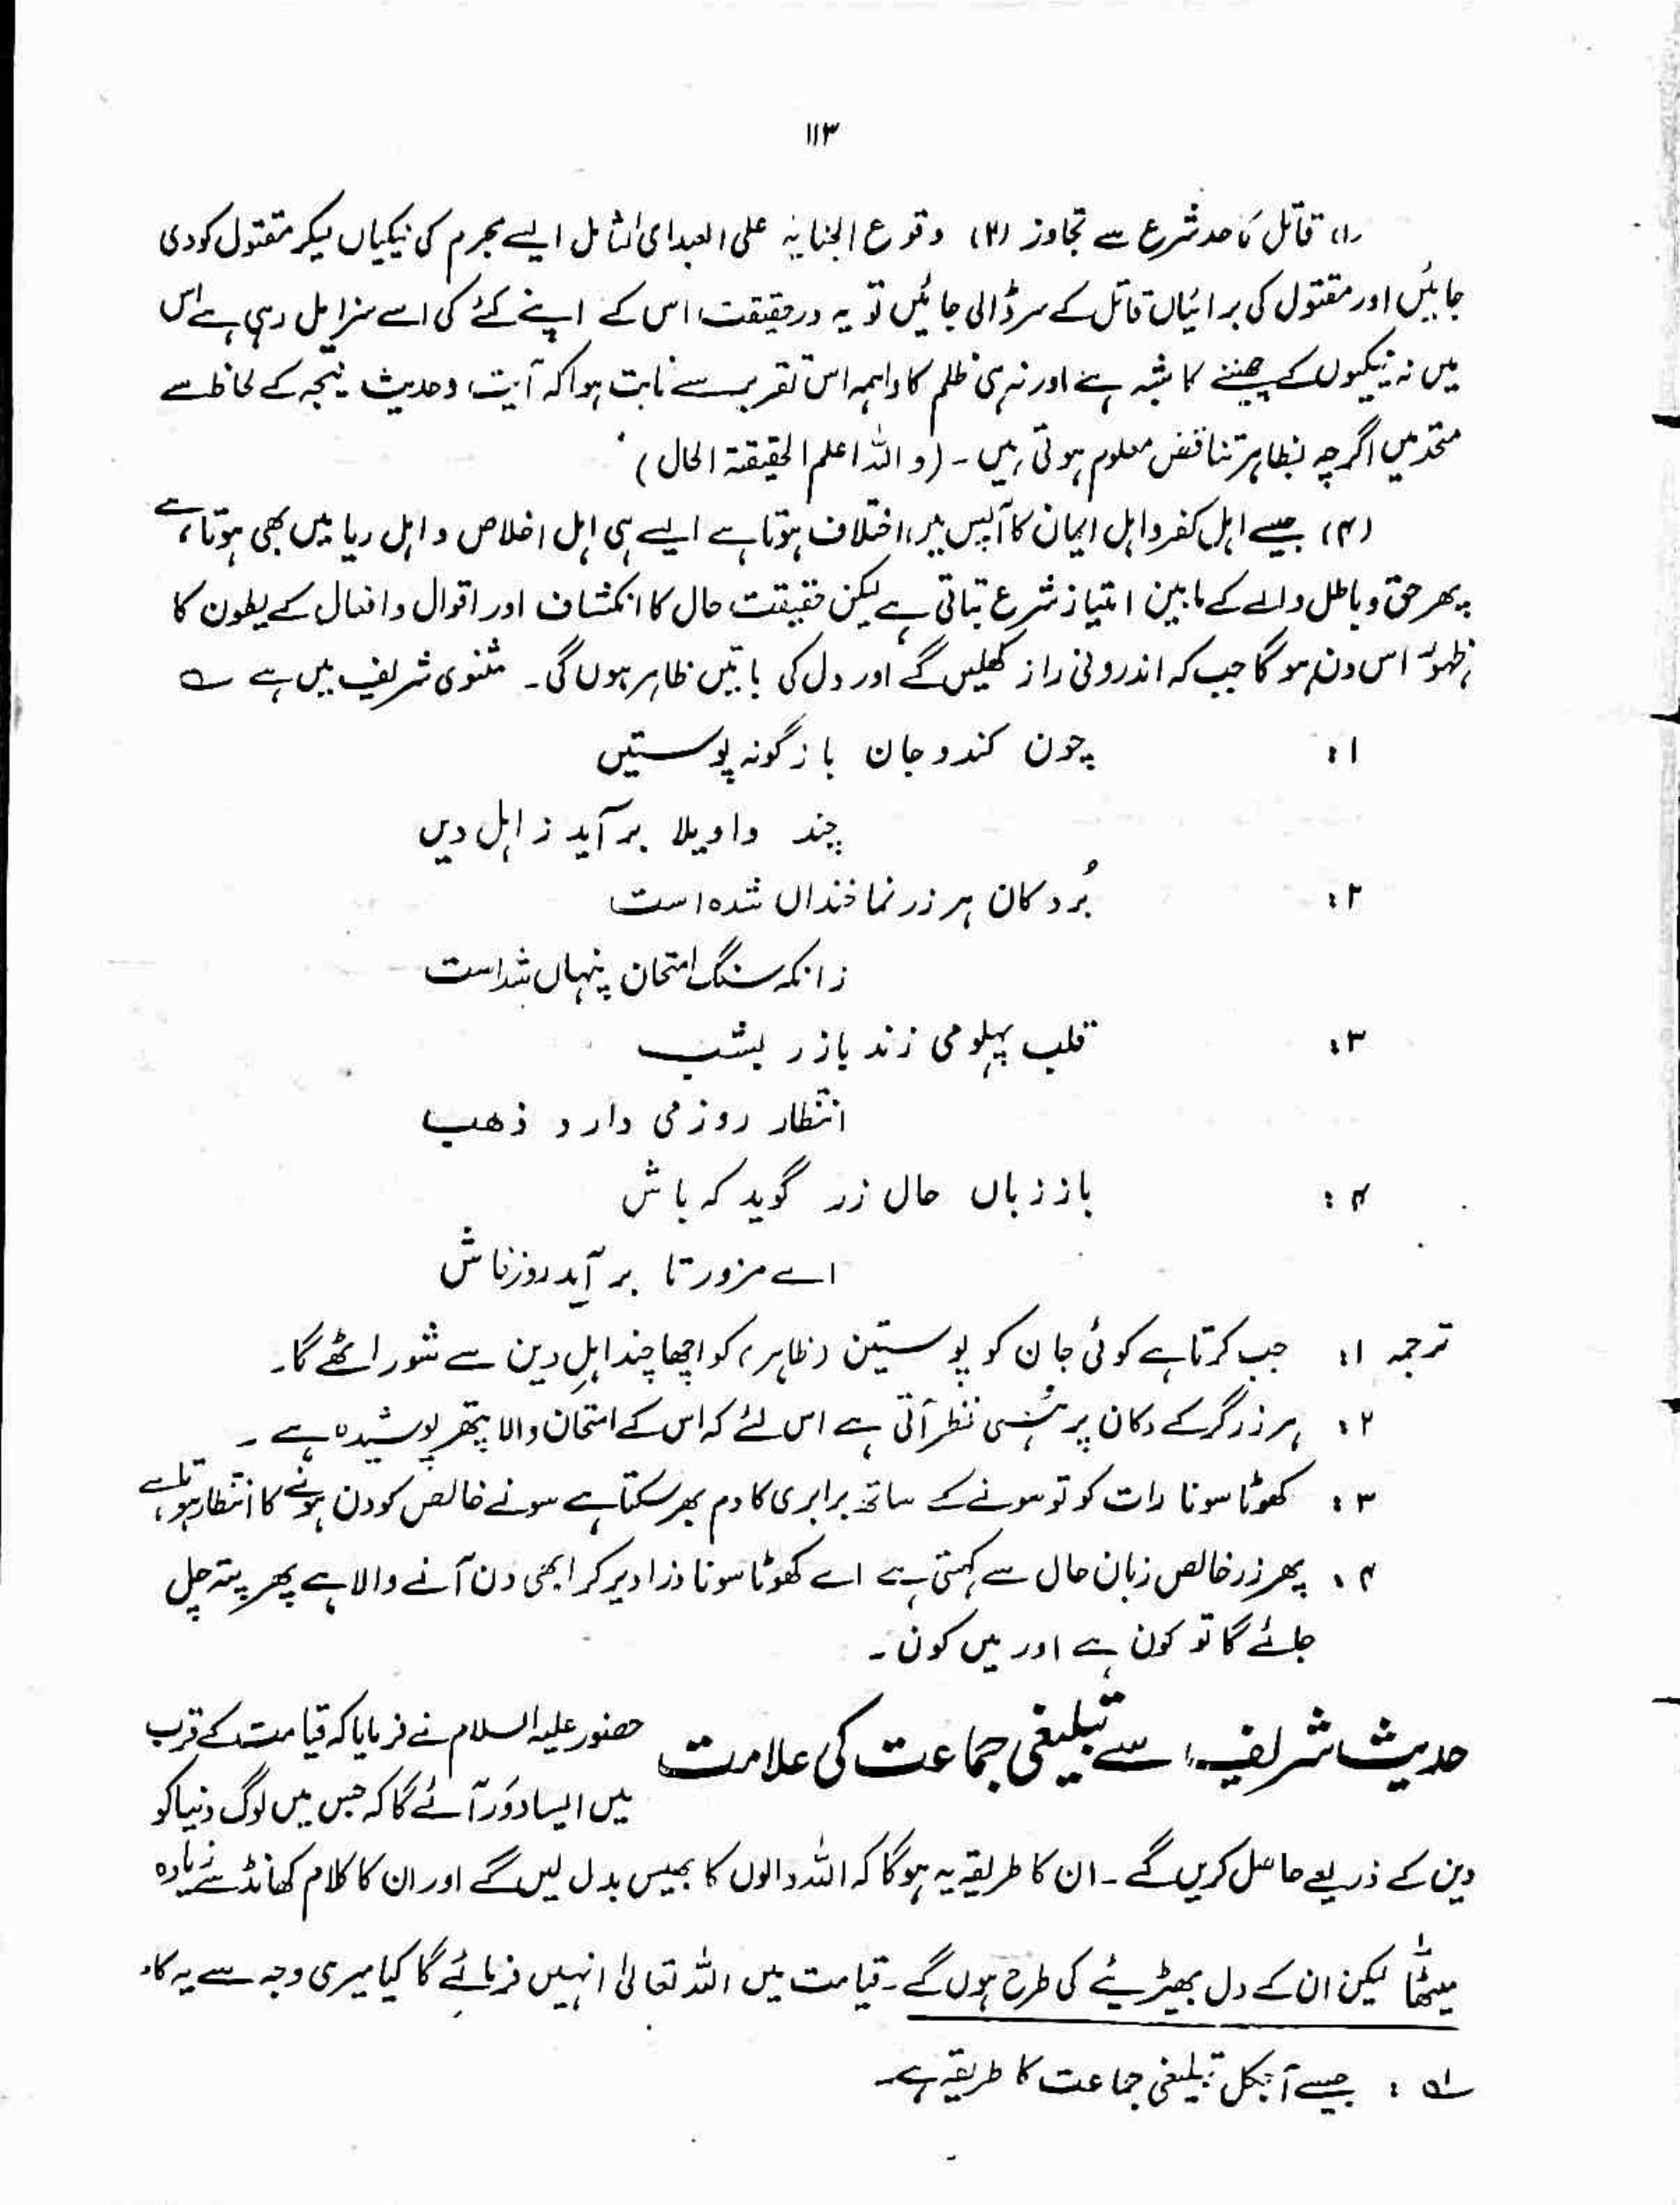 ۱۱۳
(۱) قاتل کا حد شرع سے تجاوز (۲) وقوع الجنایہ علی العبد ای القاتل ایسے مجرم کی نیکیاں لیکر مقتول کو دی
جائیں اور مقتول کی برائیاں قاتل کے سر ڈالی جائیں تو یہ درحقیقت اس کے اپنے کئے کی اسے سزا مل رہی ہے اس
میں نہ نیکیوں کے چھیننے کا شبہ ہے اور نہ ہی ظلم کا واہمہ اس تقریر سے ثابت ہوا کہ آیت وحدیث نتیجہ کے لحاظ سے
متحد ہیں اگرچہ بظاہر تناقض معلوم ہوتی ہیں ۔ (واللہ اعلم الحقیقۃ الحال)
(۳) جیسے اہل کفر و اہل ایمان کا آپس میں اختلاف ہوتا ہے ایسے ہی اہل اخلاص و اہل ریا میں بھی ہوتا ہے
پھر حق و باطل والے کے مابین امتیاز شرع بتاتی ہے لیکن حقیقت حال کا انکشاف اور اقوال و افعال کے بطون کا
ظہور اس دن ہو گا جب کہ اندرونی راز کھلیں گے اور دل کی باتیں ظاہر ہوں گی۔ مثنوی شریف میں ہے ؎
۱: چون کند و جان بازگونہ پوستیں
چند واویلا بر آید ز اہل دیں
۲: بُر دکان ہر زر نما خنداں شدہ است
زانکہ سنگ امتحان پنہاں شداست
۳: قلب پہلو می زند بازر بشب
انتظار روز می دارد ذھب
۴: باز زباں حال زر گوید کہ باش
اے مزور تا بر آید روز فاش
ترجمہ ۱: جب کرتا ہے کوئی جان کو پوستین (ظاہر) کو اچھا چند اہلِ دین سے شور اٹھے گا۔
۲: ہر زرگر کے دکان پر ہنسی نظر آتی ہے اس لئے کہ اس کے امتحان والا پتھر پوشیدہ ہے ۔
۳: کھوٹا سونا رات کو تو سونے کے ساتھ برابری کا دم بھر سکتا ہے سونے خالص کو دن ہونے کا انتظار ہوتا ہے
۴: پھر زر خالص زبان حال سے کہتی ہے اے کھوٹا سونا ذرا دیر کر ابھی دن آنے والا ہے پھر پتہ چل
جائے گا تو کون ہے اور میں کون ۔
حدیث شریف سے تبلیغی جماعت کی علامت حضور علیہ السلام نے فرمایا کہ قیامت کے قرب
میں ایسا دَور آئے گا کہ جس میں لوگ دنیا کو
دین کے ذریعے حاصل کریں گے ۔ ان کا طریقہ یہ ہوگا کہ اللہ والوں کا بھیس بدل لیں گے اور ان کا کلام کھانڈ سے زیادہ
میٹھا لیکن ان کے دل بھیڑیئے کی طرح ہوں گے ۔ قیامت میں اللہ تعالیٰ انہیں فرمائے گا کیا میری وجہ سے یہ کا
؎۱ : جیسے آجکل تبلیغی جماعت کا طریقہ ہے۔